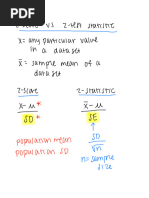 Z-score vs z-test statistic
x = any particular value
in a dataset
x̄ = sample mean of a
dataset
z-score z-statistic
x-μ* x̄-μ
SD* SE
population mean SD
population SD √n
n=sample
size